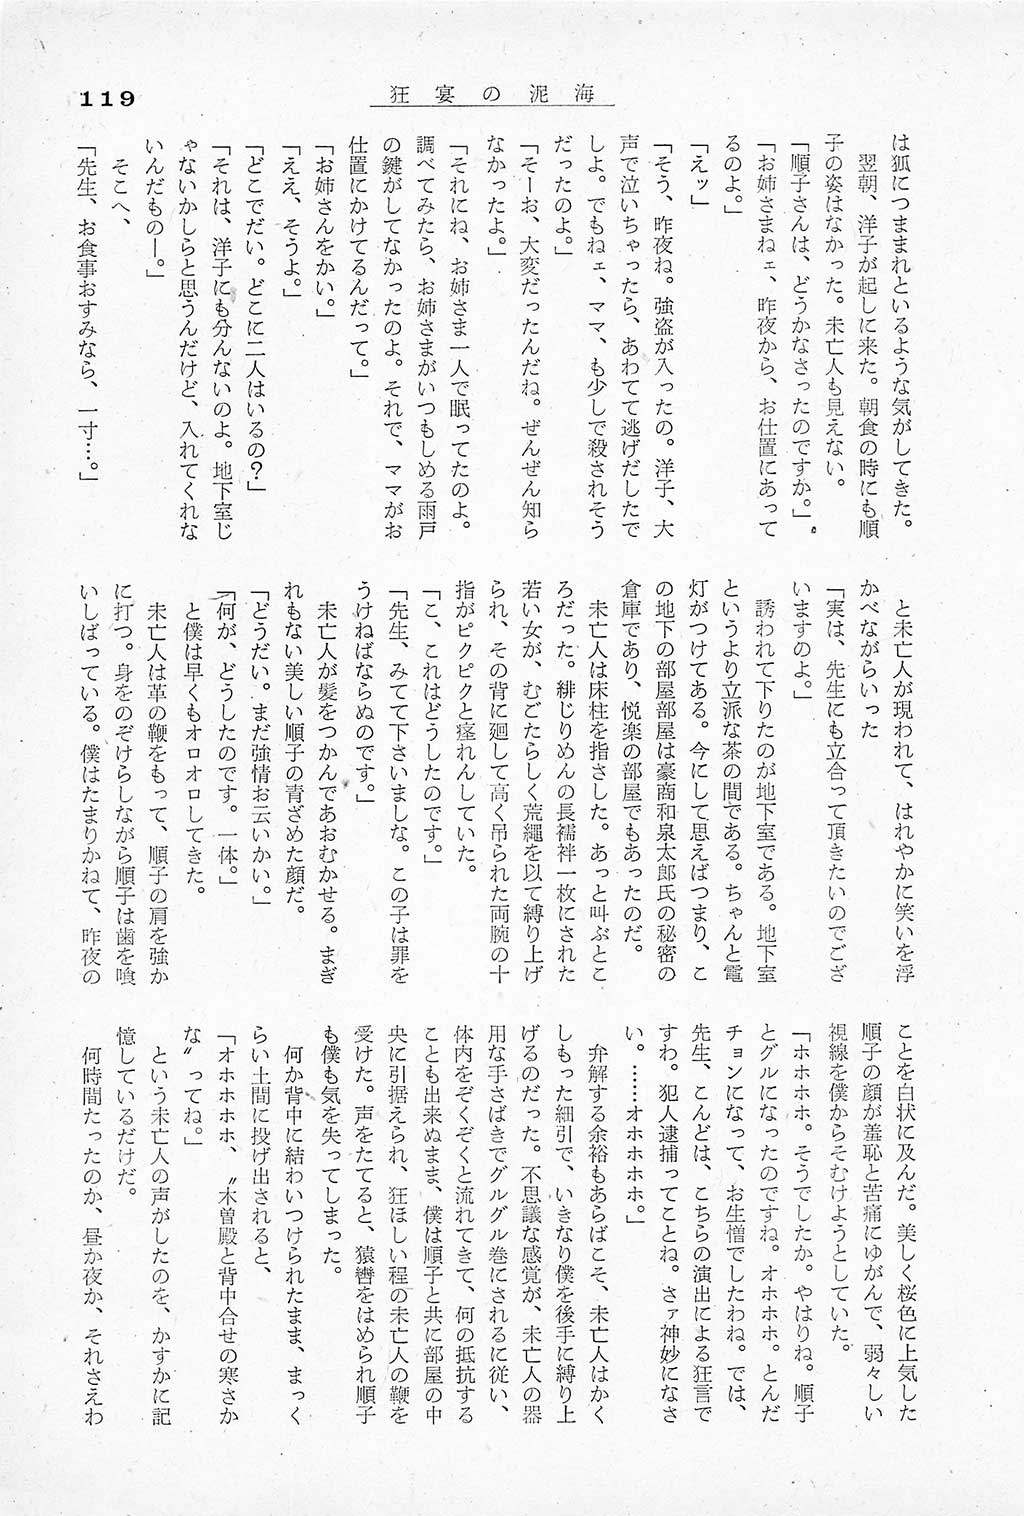 119
狂宴の泥海
は狐につままれといるような気がしてきた。
翌朝、洋子が起しに来た。朝食の時にも順
子の姿はなかった。未亡人も見えない。
「順子さんは、どうかなさったのですか。」
「お姉さまねェ、昨夜から、お仕置にあって
るのよ。」
「えッ」
「そう、昨夜ね。強盗が入ったの。洋子、大
声で泣いちゃったら、あわてて逃げだしたで
しよ。でもねェ、ママ、も少しで殺されそう
だったのよ。」
「そーお、大変だったんだね。ぜんぜん知ら
なかったよ。」
「それにね、お姉さま一人で眠ってたのよ。
調べてみたら、お姉さまがいつもしめる雨戸
の鍵がしてなかったのよ。それで、ママがお
仕置にかけてるんだって。」
「お姉さんをかい。」
「ええ、そうよ。」
「どこでだい。どこに二人はいるの？」
「それは、洋子にも分んないのよ。地下室じ
ゃないかしらと思うんだけど、入れてくれな
いんだものー。」
そこへ、
「先生、お食事おすみなら、一寸…。」
と未亡人が現われて、はれやかに笑いを浮
かべながらいった
「実は、先生にも立合って頂きたいのでござ
いますのよ。」
誘われて下りたのが地下室である。地下室
というより立派な茶の間である。ちゃんと電
灯がつけてある。今にして思えばつまり、こ
の地下の部屋部屋は豪商和泉太郎氏の秘密の
倉庫であり、悦楽の部屋でもあったのだ。
未亡人は床柱を指さした。あっと叫ぶとこ
ろだった。緋じりめんの長襦袢一枚にされた
若い女が、むごたらしく荒縄を以て縛り上げ
られ、その背に廻して高く吊られた両腕の十
指がピクピクと痙れんしていた。
「こ、これはどうしたのです。」
「先生、みてて下さいましな。この子は罪を
うけねばならぬのです。」
未亡人が髪をつかんであおむかせる。まぎ
れもない美しい順子の青ざめた顔だ。
「どうだい。まだ強情お云いかい。」
「何が、どうしたのです。一体。」
と僕は早くもオロオロしてきた。
未亡人は革の鞭をもって、順子の肩を強か
に打つ。身をのぞけらしながら順子は歯を喰
いしばっている。僕はたまりかねて、昨夜の
ことを白状に及んだ。美しく桜色に上気した
順子の顔が羞恥と苦痛にゆがんで、弱々しい
視線を僕からそむけようとしていた。
「ホホホホ。そうでしたか。やはりね。順子
とグルになったのですね。オホホホ。とんだ
チョンになって、お生憎でしたわね。では、
先生、こんどは、こちらの演出による狂言で
すわ。犯人逮捕ってことね。さァ神妙になさ
い。……オホホホホ。」
弁解する余裕もあらばこそ、未亡人はかく
しもった細引で、いきなり僕を後手に縛り上
げるのだった。不思議な感覚が、未亡人の器
用な手さばきでグルグル巻にされるに従い、
体内をぞくぞくと流れてきて、何の抵抗する
ことも出来ぬまま、僕は順子と共に部屋の中
央に引据えられ、狂ほしい程の未亡人の鞭を
受けた。声をたてると、猿轡をはめられ順子
も僕も気を失ってしまった。
何か背中に結わいつけられたまま、まっく
らい土間に投げ出されると、
「オホホホホ、〝木曽殿と背中合せの寒さか
な〟ってね。」
という未亡人の声がしたのを、かすかに記
憶しているだけだ。
何時間たったのか、昼か夜か、それさえわ